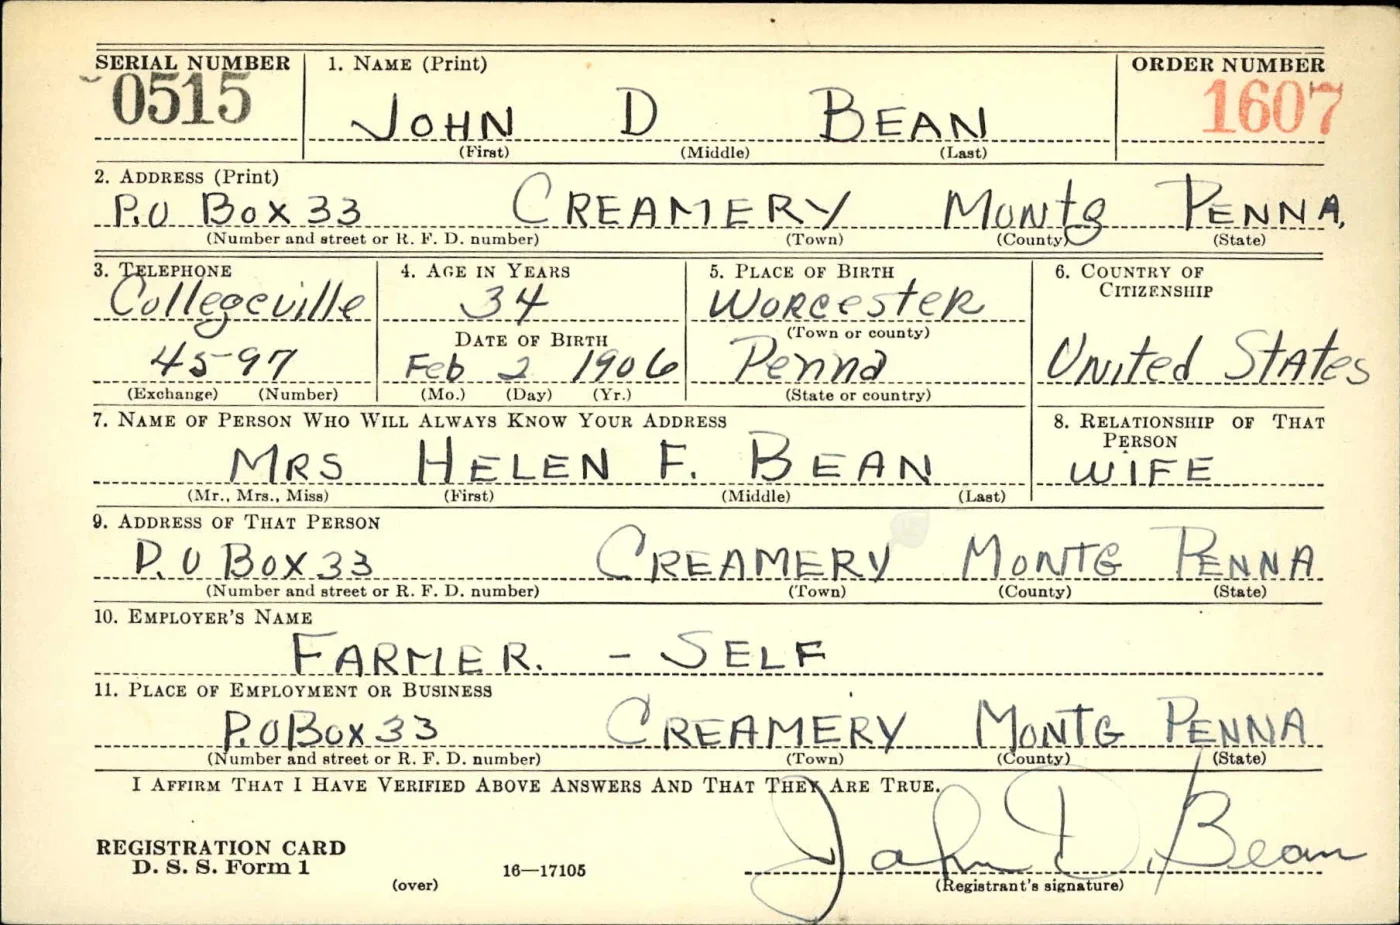 SERIAL NUMBER 1. NAME (Print) ORDER NUMBER
0515 JOHN D BEAN 1607
(First) (Middle) (Last)
2. ADDRESS (Print)
P.O BOX 33 CREAMERY MONTG PENNA.
(Number and street or R. F. D. number) (Town) (County) (State)
3. TELEPHONE 4. AGE IN YEARS 5. PLACE OF BIRTH 6. COUNTRY OF
CITIZENSHIP
Collegeville 34 Worcester
DATE OF BIRTH (Town or county)
45-97 Feb 2 1906 Penna United States
(Exchange) (Number) (Mo.) (Day) (Yr.) (State or country)
7. NAME OF PERSON WHO WILL ALWAYS KNOW YOUR ADDRESS 8. RELATIONSHIP OF THAT
PERSON
MRS HELEN F. BEAN WIFE
(Mr., Mrs., Miss) (First) (Middle) (Last)
9. ADDRESS OF THAT PERSON
P.O BOX 33 CREAMERY MONTG PENNA
(Number and street or R. F. D. number) (Town) (County) (State)
10. EMPLOYER'S NAME
FARMER. - SELF
11. PLACE OF EMPLOYMENT OR BUSINESS
P.O BOX 33 CREAMERY MONTG PENNA
(Number and street or R. F. D. number) (Town) (County) (State)
I AFFIRM THAT I HAVE VERIFIED ABOVE ANSWERS AND THAT THEY ARE TRUE.
REGISTRATION CARD
D. S. S. Form 1 16—17105 John D. Bean
(over) (Registrant's signature)